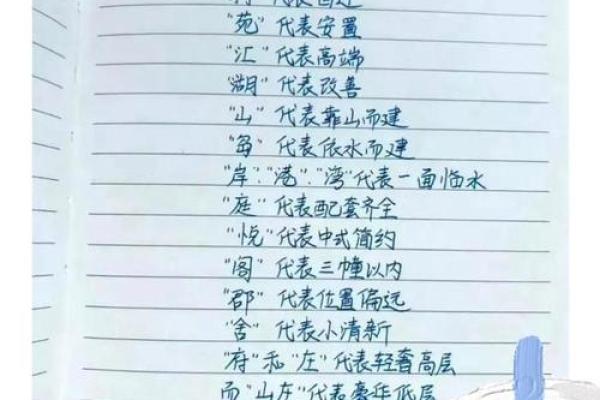 "苑"代表安置
"汇"代表高端
"湖"代表改善
"山"代表靠山而建
"岛"代表依水而建
"岸"."港"."湾"代表一面临水
"庭"代表配套齐全
"悦"代表中式简约
"阁"代表三幢以内
"郡"代表位置偏远
"舍"代表小清新
"府"和"左"代表轻奢高层
而"山左"代表豪华低层